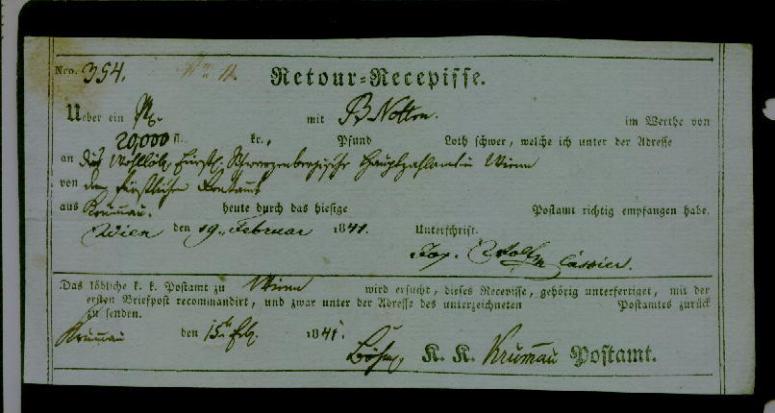 Nro. 394.
Retour=Recepisse.
Ueber ein Pk. mit B Notten. im Werthe von
20,000 fl. kr., Pfund Loth schwer, welche ich unter der Adresse
an die Wohllöbl. Fürstl. Schwarzenbergische Hauptzahlamt in Wienn
von dem fürstlichen Rentamt
aus Krummau. heute durch das hiesige Postamt richtig empfangen habe.
Wien den 19. Februar 1841. Unterschrift.
Jos. Cassier.
Das löbliche k. k. Postamt zu Wienn wird ersucht, dieses Recepisse, gehörig unterfertiget, mit der
ersten Briefpost recommandirt, und zwar unter der Adresse des unterzeichneten Postamtes zurück
zu senden.
Krummau den 15. Feb. 1841.
Böhm. K. K. Krumau Postamt.